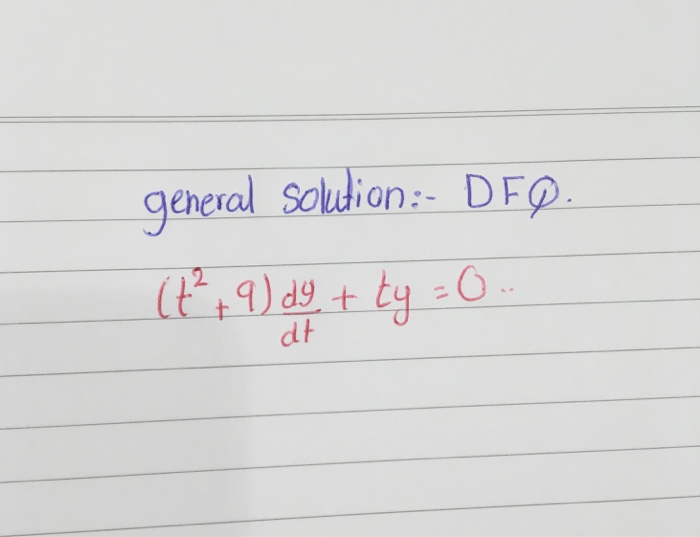 general solution:- DFQ.
(t²+9) dy/dt + ty = 0..